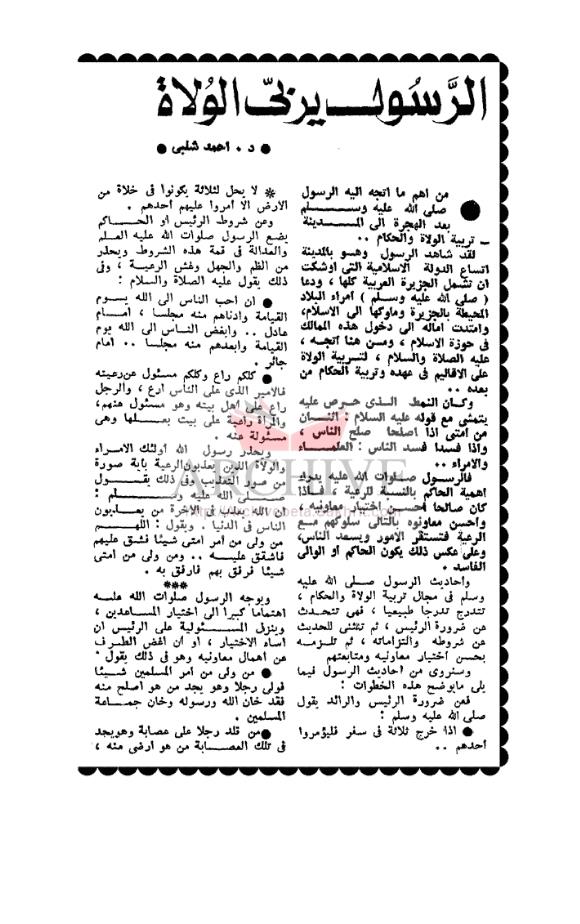 الرَّسُول يربّى الوُلاة
● د . احمد شلبى ●
● من اهم ما اتجه اليه الرسول
صلى الله عليه وسلم
بعد الهجرة الى المدينة
ـ تربية الولاة والحكام ..
لقد شاهد الرسول وهو بالمدينة
اتساع الدولة الاسلامية التى اوشكت
ان تشمل الجزيرة العربية كلها ، ودعا
( صلى الله عليه وسلم ) أمراء البلاد
المحيطة بالجزيرة وملوكها الى الاسلام،
وامتدت اماله الى دخول هذه الممالك
فى حوزة الاسلام ، ومن هنا اتجه ،
عليه الصلاة والسلام ، لتربية الولاة
على الاقاليم فى عهده وتربية الحكام من
بعده ..
وكان النمط الذى حرص عليه
يتمشى مع قوله عليه السلام : اثنان
من امتى اذا اصلحا صلح الناس ،
واذا فسدا فسد الناس : العلماء
والامراء ..
فالرسول صلوات الله عليه يدرك
اهمية الحاكم بالنسبة للرعية ، فاذا
كان صالحا احسن اختيار معاونيه ،
واحسن معاونوه بالتالى سلوكهم مع
الرعية فتستقر الامور ويسعد الناس،
وعلى عكس ذلك يكون الحاكم او الوالى
الفاسد .
واحاديث الرسول صلى الله عليه
وسلم فى مجال تربية الولاة والحكام ،
تتدرج تدرجا طبيعيا ، فهى تتحدث
عن ضرورة الرئيس ، ثم تنثنى للحديث
عن شروطه والتزاماته ، ثم تلزمه
بحسن أختيار معاونيه ومتابعتهم
وسنروى من احاديث الرسول فيما
يلى مايوضح هذه الخطوات :
فعن ضرورة الرئيس والرائد يقول
صلى الله عليه وسلم :
● اذا خرج ثلاثة فى سفر فليؤمروا
أحدهم ..
* لا يحل لثلاثة يكونوا فى خلاة من
الارض الا أمروا عليهم أحدهم .
وعن شروط الرئيس او الحاكم
يضع الرسول صلوات الله عليه العلم
والعدالة فى قمة هذه الشروط ويحذر
من الظلم والجهل وغش الرعية ، وفى
ذلك يقول عليه الصلاة والسلام :
● ان احب الناس الى الله يوم
القيامة وادناهم منه مجلسا ، أمام
عادل .. وابغض الناس الى الله يوم
القيامة وابعدهم منه مجلسا .. امام
جائر .
● كلكم راع وكلكم مسئول عن رعيته
فالامير الذى على الناس راع ، والرجل
راع على اهل بيته وهو مسئول منهم،
والمرأة راعية على بيت بعلها وهى
مسئولة عنه .
ويحذر رسول الله أولئك الامراء
والولاة الذين يعذبون الرعية بأية صورة
من صور التعذيب وفى ذلك يقول
صلى الله عليه وسلم :
ان الله يعذب فى الآخرة من يعذبون
الناس فى الدنيا . ويقول : اللهم
من ولى من امر امتى شيئا فشق عليهم
فاشقق عليه .. ومن ولى من امتى
شيئا فرفق بهم فارفق به .
***
ويوجه الرسول صلوات الله عليه
اهتماما كبيرا الى اختيار المساعدين ،
وينزل المسئولية على الرئيس ان
اساء الاختيار ، او ان أغض الطرف
عن اهمال معاونيه وهو فى ذلك يقول
● من ولى من امر المسلمين شيئا
فولى رجلا وهو يجد من هو اصلح منه
فقد خان الله ورسوله وخان جماعة
المسلمين .
● من قلد رجلا على عصابة وهويجد
فى تلك العصابة من هو ارضى منه ،
ARCHIVE